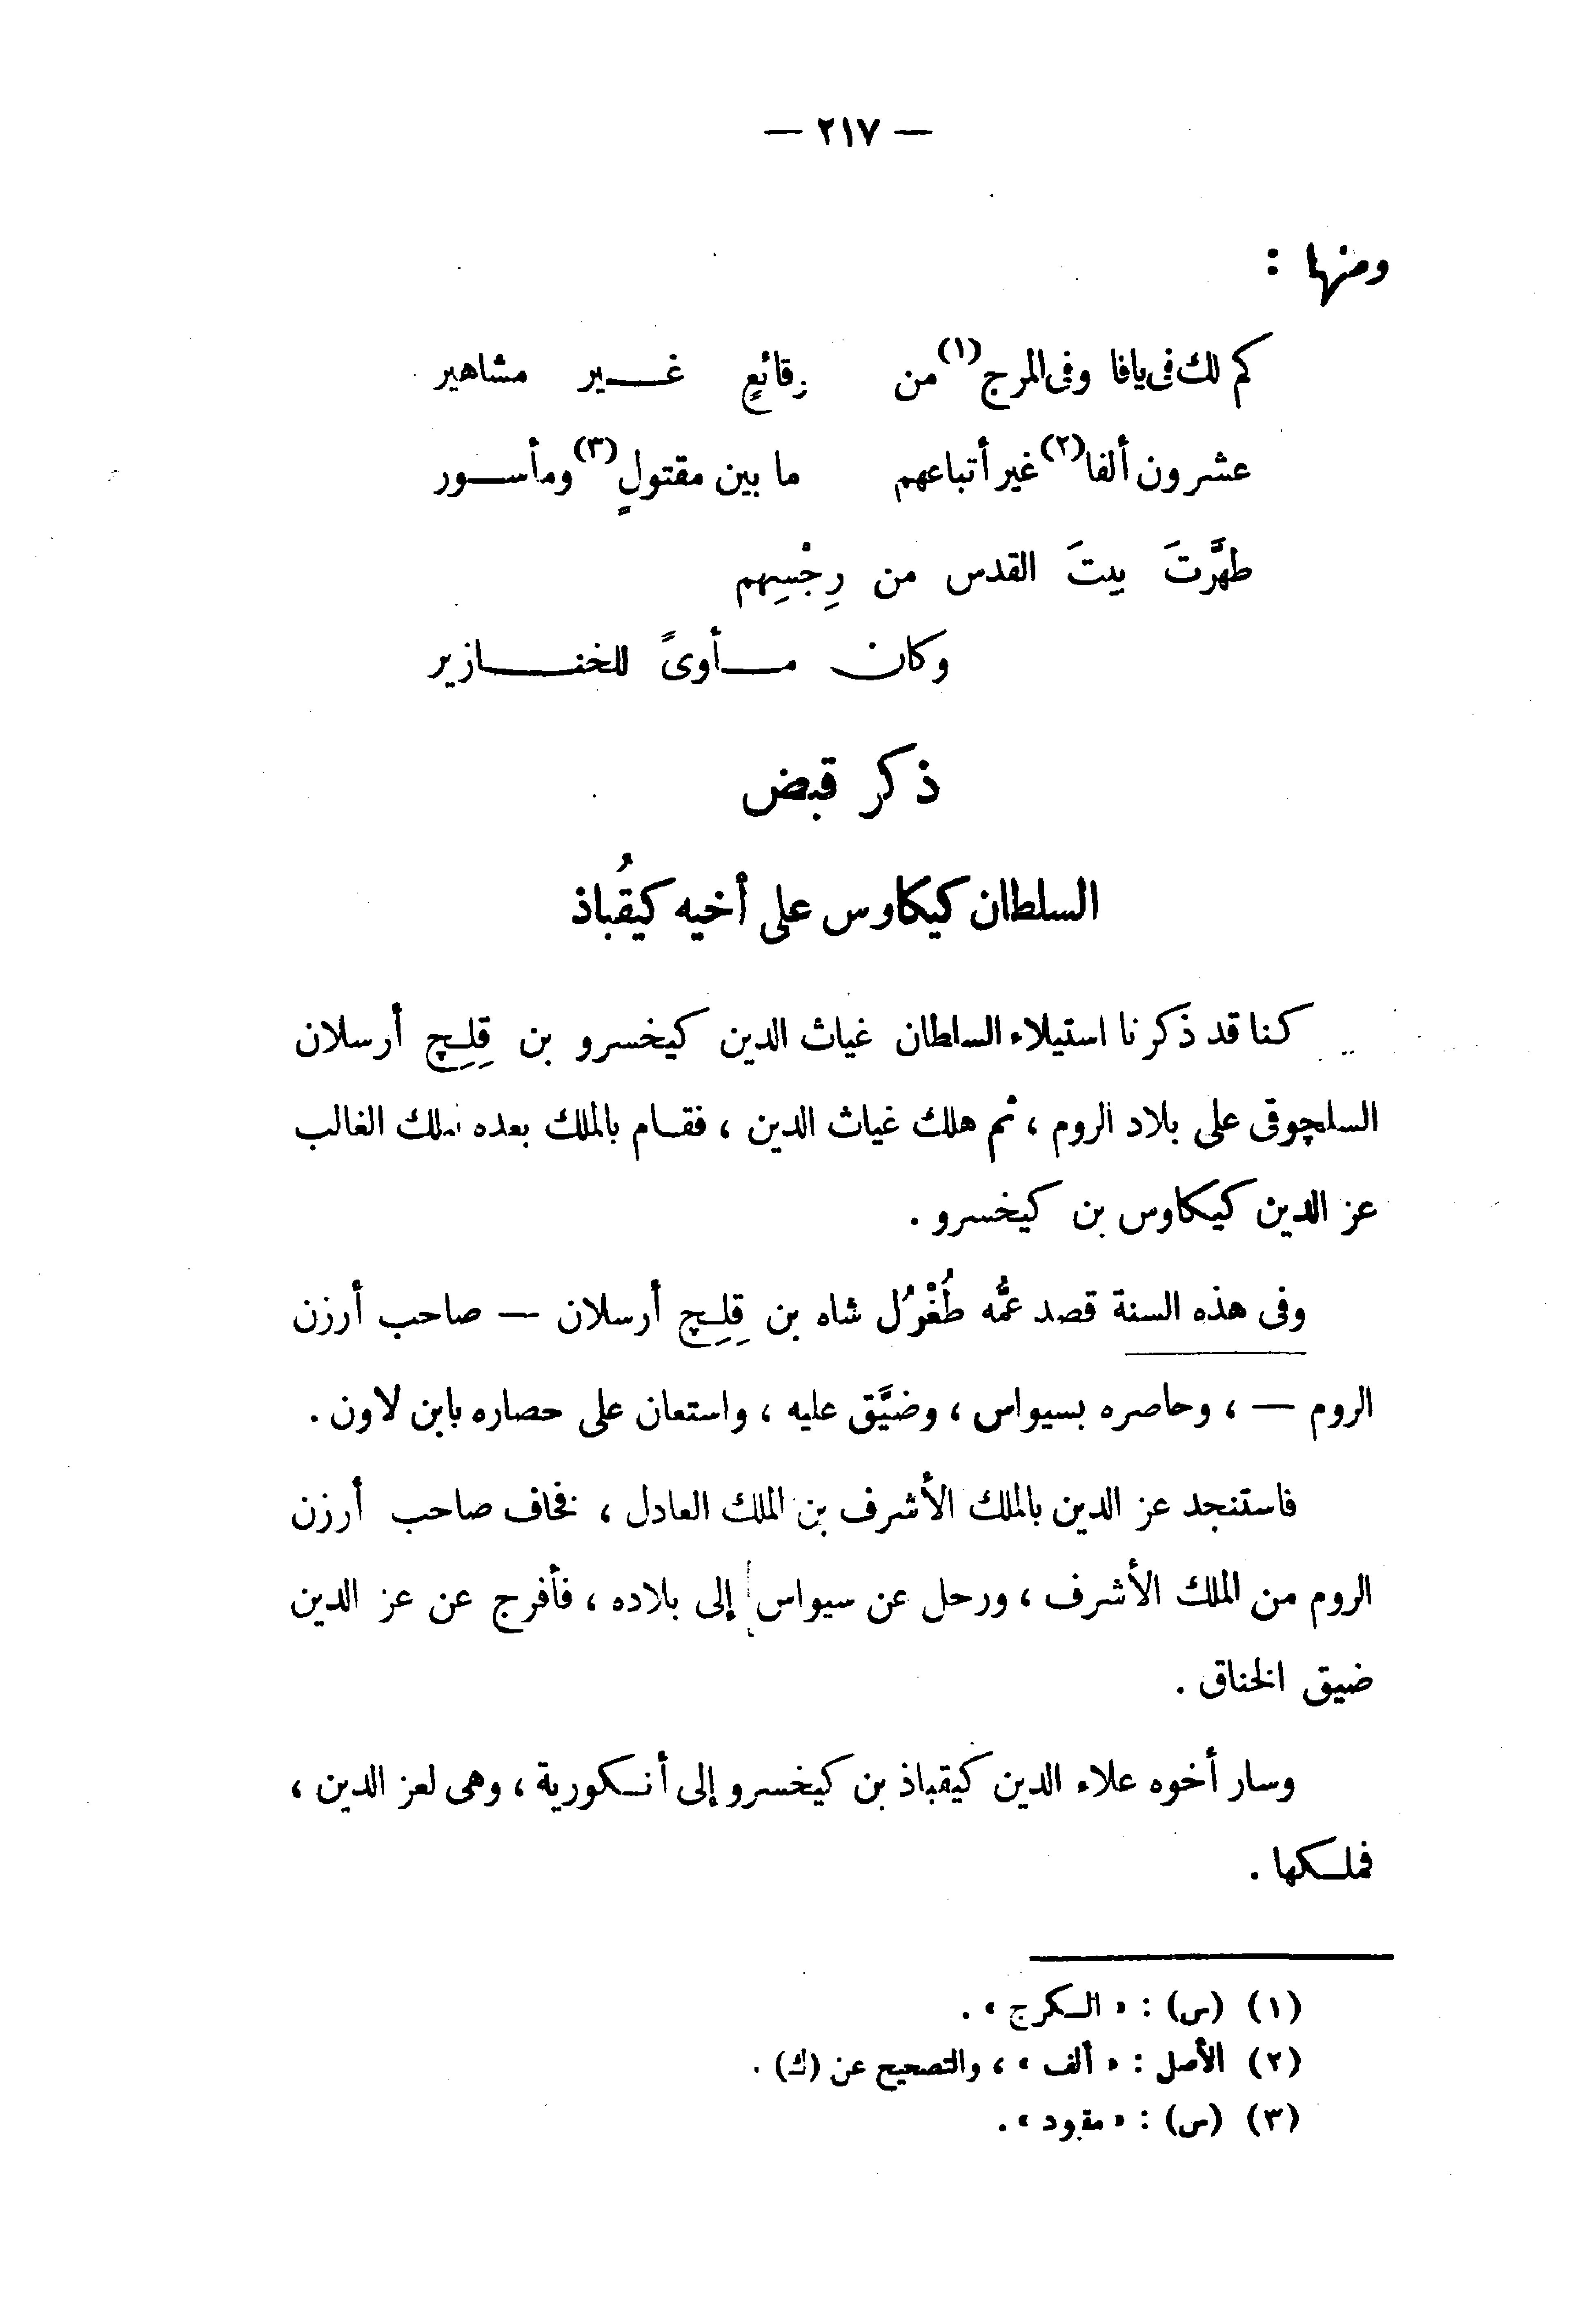 — ٢١٧ —
ومنها :
كم لك فى يافا وفى المرج(١) من وقائعٍ غير مشاهير
عشرون ألفا(٢) غير أتباعهم ما بين مقتولٍ(٣) ومأسور
طهَّرتَ بيتَ القدس من رِجْسِهم
وكان مأوىً للخنازير
ذكر قبض
السلطان كيكاوس على أخيه كيقُباذ
كنا قد ذكرنا استيلاء السلطان غياث الدين كيخسرو بن قِلِج أرسلان
السلجوقى على بلاد الروم ، ثم هلك غياث الدين ، فقام بالملك بعده الملك الغالب
عز الدين كيكاوس بن كيخسرو .
وفى هذه السنة قصد عمُّه طُغْرُل شاه بن قِلِج أرسلان — صاحب أرزن
الروم — ، وحاصره بسيواس ، وضيَّق عليه ، واستعان على حصاره بابن لاون .
فاستنجد عز الدين بالملك الأشرف بن الملك العادل ، فخاف صاحب أرزن
الروم من الملك الأشرف ، ورحل عن سيواس إلى بلاده ، فأفرج عن عز الدين
ضيق الخناق .
وسار أخوه علاء الدين كيقباذ بن كيخسرو إلى أنكورية ، وهى لعز الدين ،
فملكها .
(١) (س) : « الكرج » .
(٢) الأصل : « ألف » ، والتصحيح عن (ك) .
(٣) (س) : « مقود » .